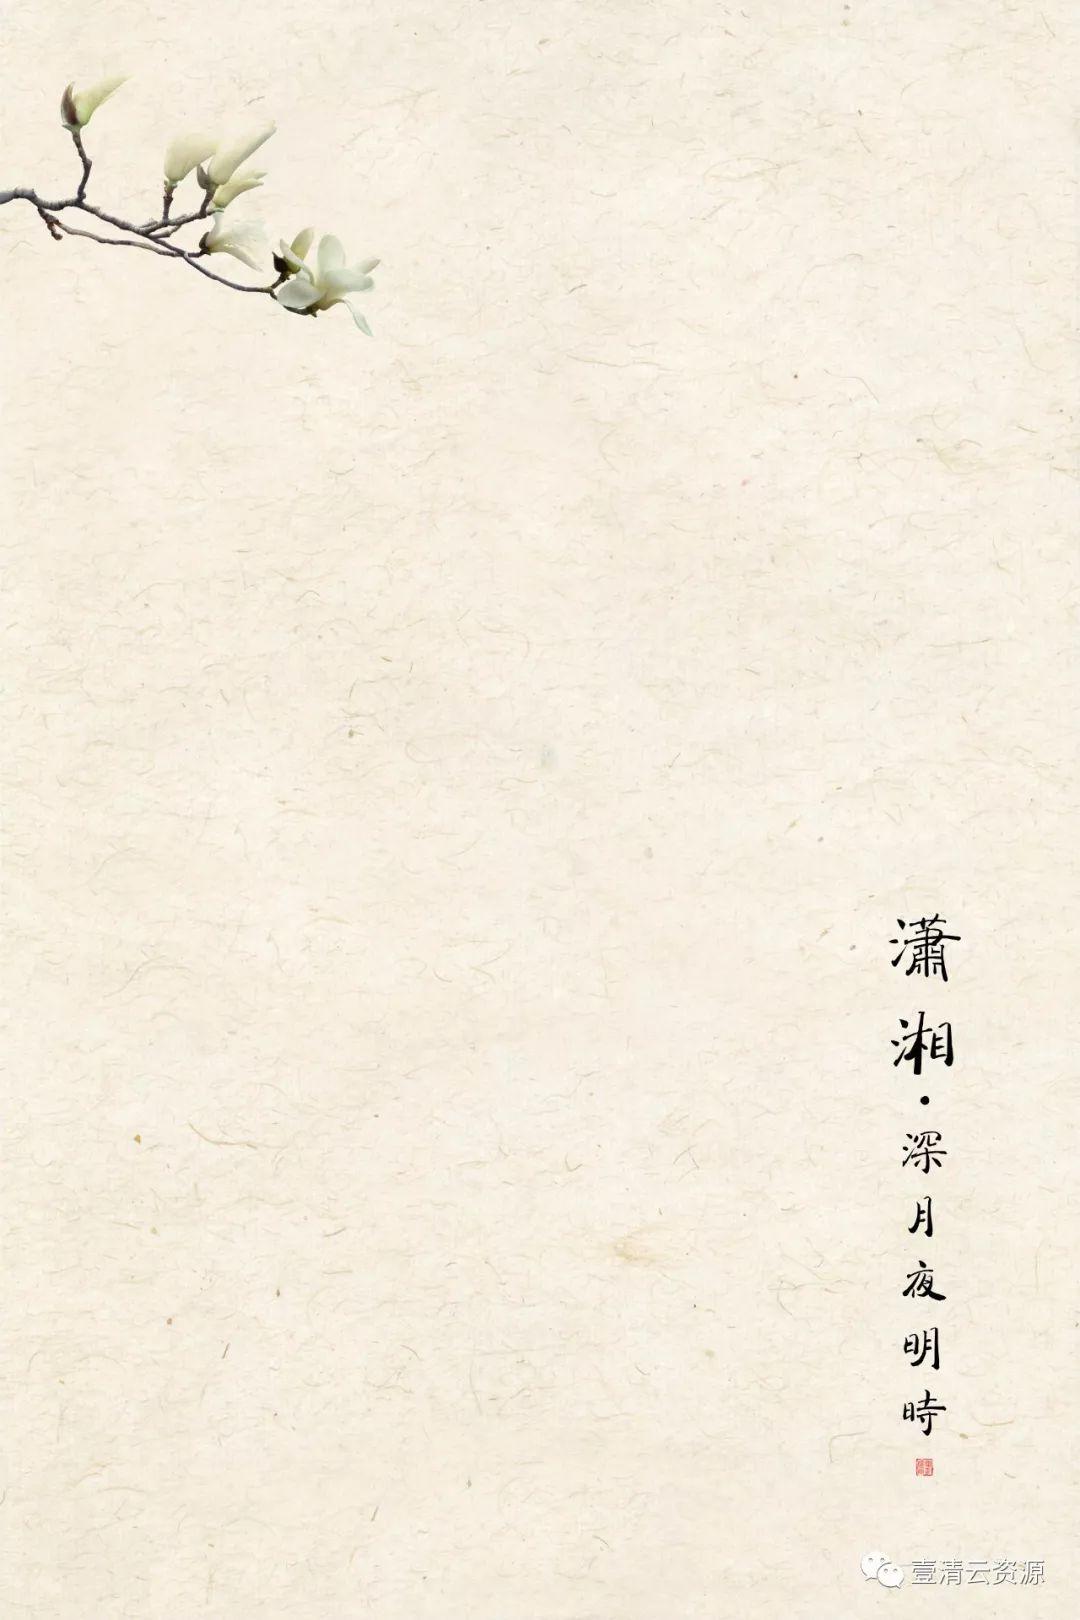 瀟湘·深月夜明時
壹清云资源